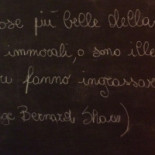 ose più belle della
immorali, o sono ille
fanno ingrassar
ge Bernard Shaw)